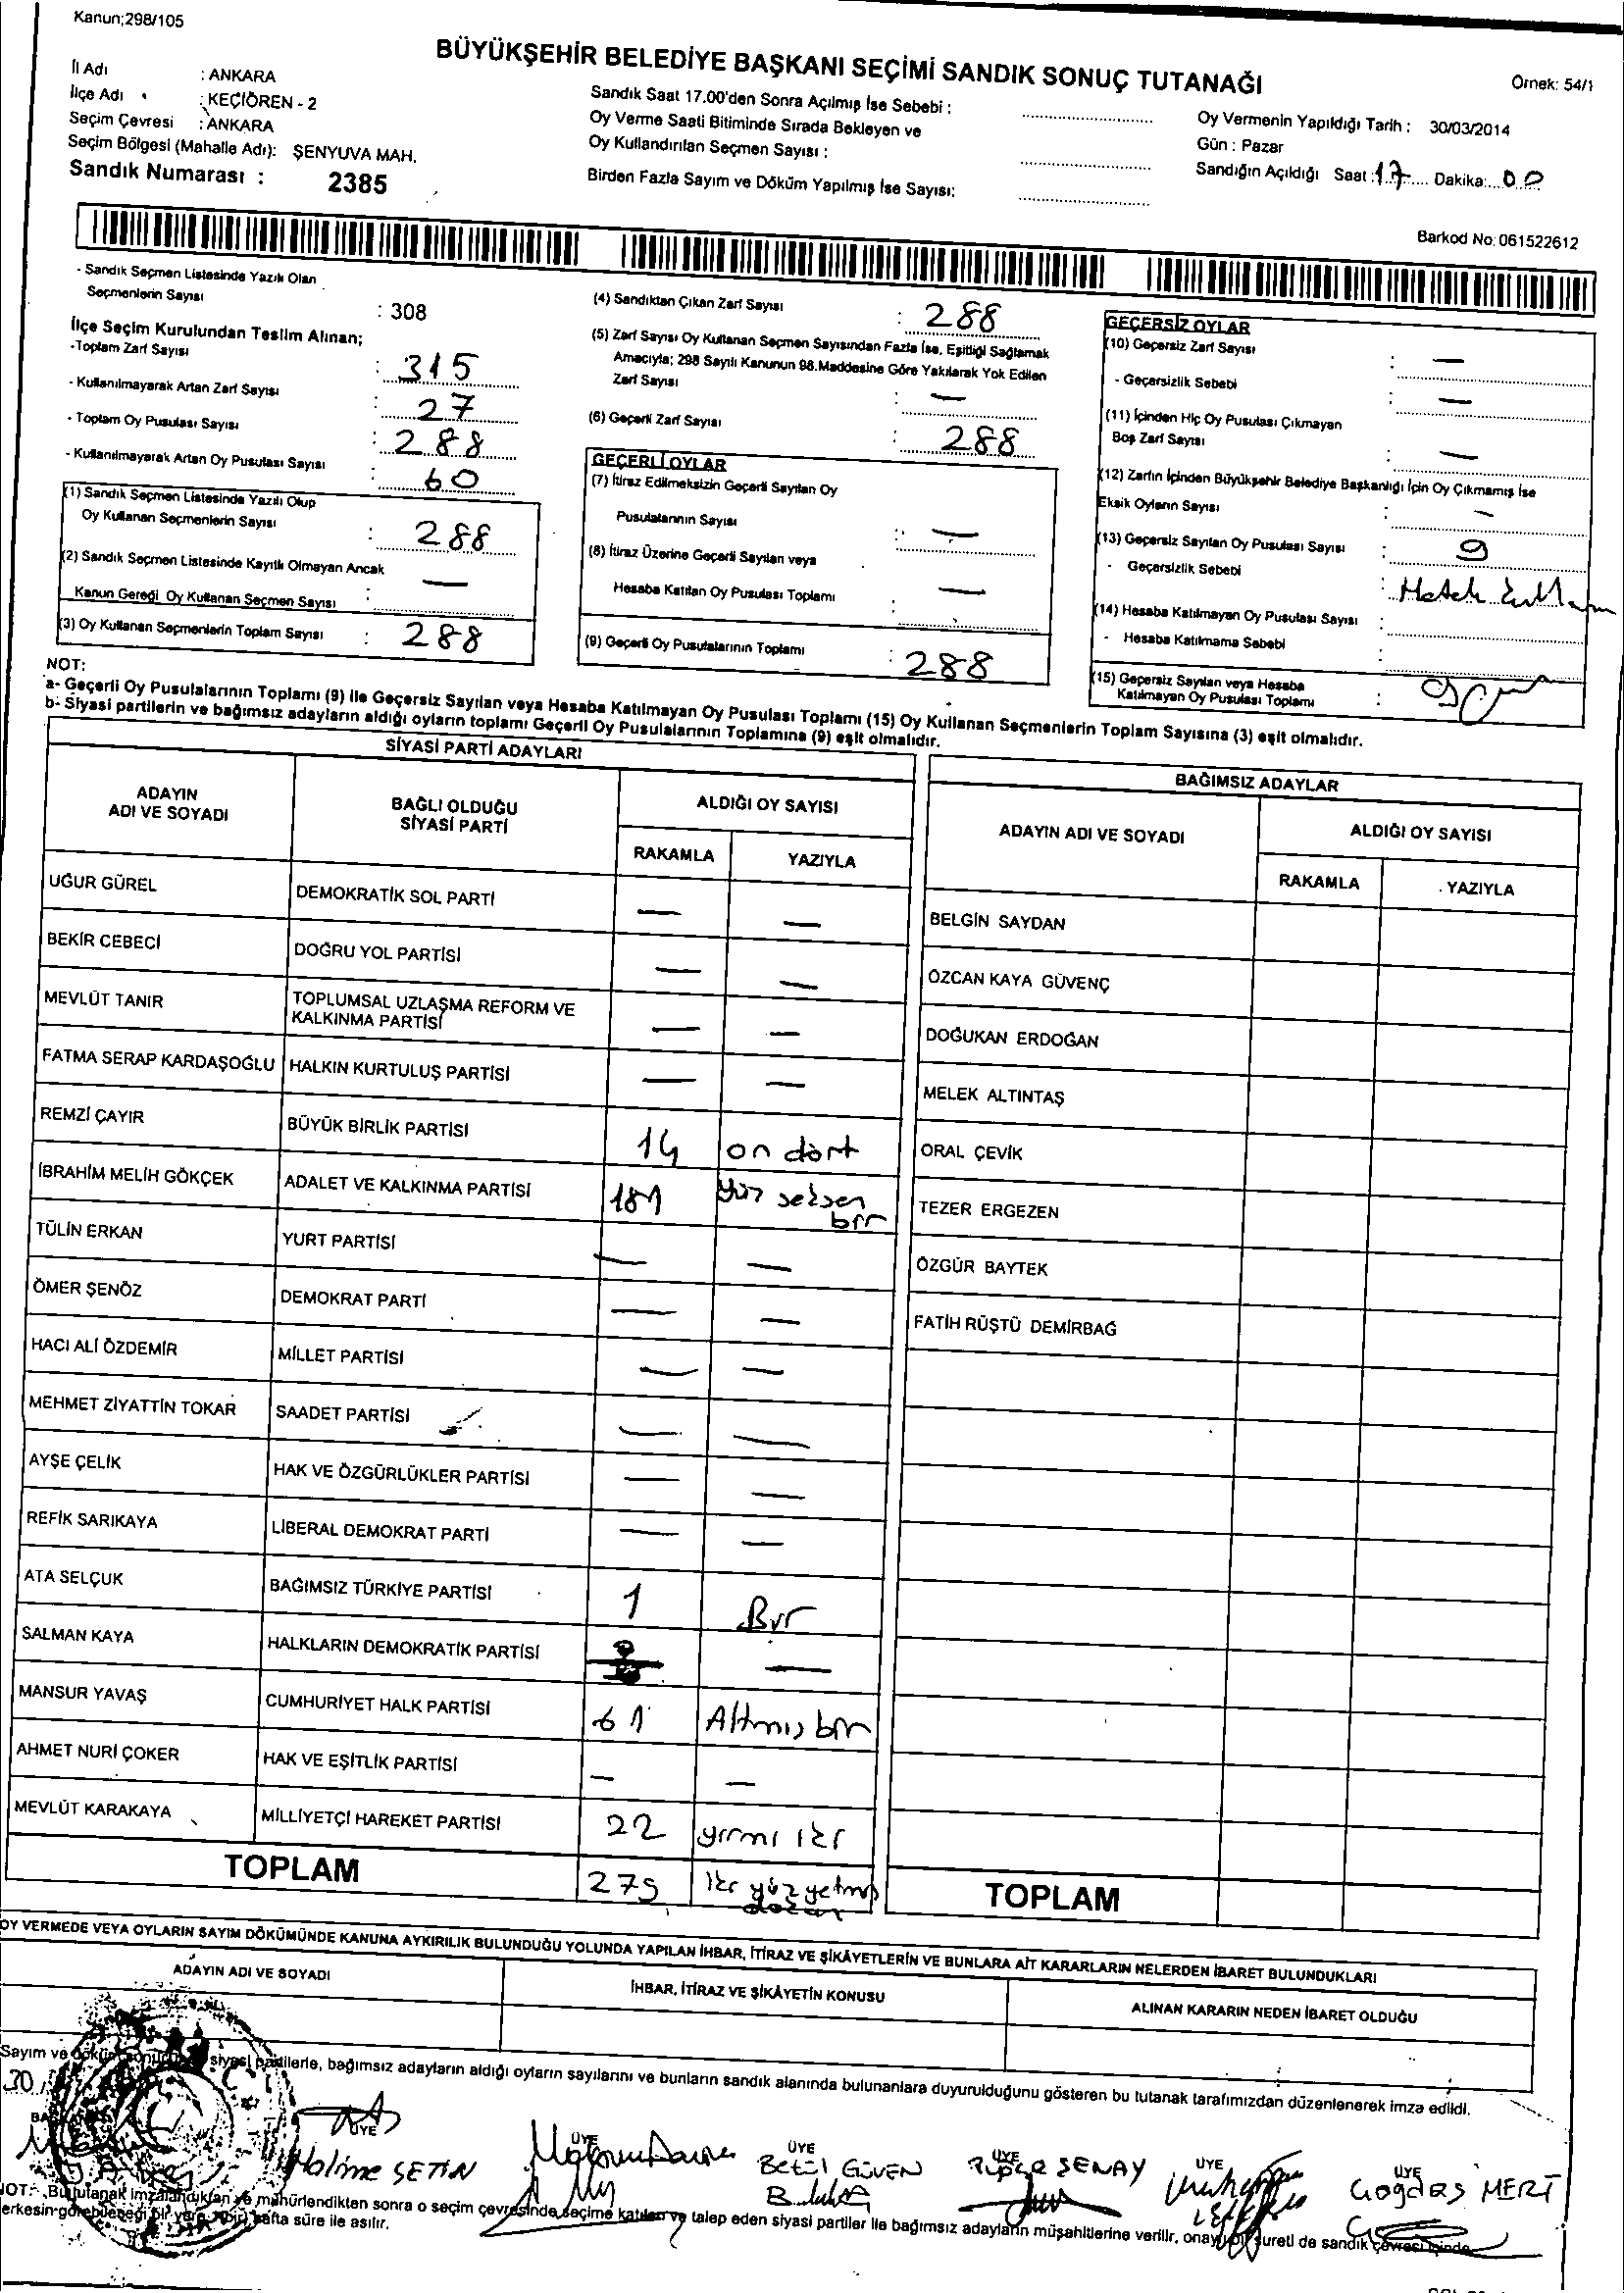 Kanun;298/105
BÜYÜKŞEHİR BELEDİYE BAŞKANI SEÇİMİ SANDIK SONUÇ TUTANAĞI
Örnek: 54/1
İl Adı : ANKARA
İlçe Adı : KEÇİÖREN - 2
Seçim Çevresi : ANKARA
Seçim Bölgesi (Mahalle Adı): ŞENYUVA MAH.
Sandık Numarası : 2385
Sandık Saat 17.00'den Sonra Açılmış İse Sebebi :
Oy Verme Saati Bitiminde Sırada Bekleyen ve
Oy Kullandırılan Seçmen Sayısı :
Birden Fazla Sayım ve Döküm Yapılmış İse Sayısı:
Oy Vermenin Yapıldığı Tarih : 30/03/2014
Gün : Pazar
Sandığın Açıldığı Saat : 17 Dakika: 00
Barkod No: 061522612
- Sandık Seçmen Listesinde Yazılı Olan
Seçmenlerin Sayısı : 308
İlçe Seçim Kurulundan Teslim Alınan;
-Toplam Zarf Sayısı : 315
- Kullanılmayarak Artan Zarf Sayısı : 27
- Toplam Oy Pusulası Sayısı : 288
- Kullanılmayarak Artan Oy Pusulası Sayısı : 60
(1) Sandık Seçmen Listesinde Yazılı Olup
Oy Kullanan Seçmenlerin Sayısı : 288
(2) Sandık Seçmen Listesinde Kayıtlı Olmayan Ancak
Kanun Gereği Oy Kullanan Seçmen Sayısı : —
(3) Oy Kullanan Seçmenlerin Toplam Sayısı : 288
(4) Sandıktan Çıkan Zarf Sayısı : 288
(5) Zarf Sayısı Oy Kullanan Seçmen Sayısından Fazla İse, Eşitliği Sağlamak
Amacıyla; 298 Sayılı Kanunun 98.Maddesine Göre Yakılarak Yok Edilen
Zarf Sayısı : —
(6) Geçerli Zarf Sayısı : 288
GEÇERLİ OYLAR
(7) İtiraz Edilmeksizin Geçerli Sayılan Oy
Pusulalarının Sayısı : —
(8) İtiraz Üzerine Geçerli Sayılan veya
Hesaba Katılan Oy Pusulası Toplamı : —
(9) Geçerli Oy Pusulalarının Toplamı : 288
GEÇERSİZ OYLAR
(10) Geçersiz Zarf Sayısı : —
- Geçersizlik Sebebi : —
(11) İçinden Hiç Oy Pusulası Çıkmayan
Boş Zarf Sayısı : —
(12) Zarfın İçinden Büyükşehir Belediye Başkanlığı İçin Oy Çıkmamış İse
Eksik Oyların Sayısı : —
(13) Geçersiz Sayılan Oy Pusulası Sayısı : 9
- Geçersizlik Sebebi :
(14) Hesaba Katılmayan Oy Pusulası Sayısı :
- Hesaba Katılmama Sebebi :
(15) Geçersiz Sayılan veya Hesaba
Katılmayan Oy Pusulası Toplamı : 9
NOT:
a- Geçerli Oy Pusulalarının Toplamı (9) ile Geçersiz Sayılan veya Hesaba Katılmayan Oy Pusulası Toplamı (15) Oy Kullanan Seçmenlerin Toplam Sayısına (3) eşit olmalıdır.
b- Siyasi partilerin ve bağımsız adayların aldığı oyların toplamı Geçerli Oy Pusulalarının Toplamına (9) eşit olmalıdır.
SİYASİ PARTİ ADAYLARI
ADAYIN
ADI VE SOYADI
BAĞLI OLDUĞU
SİYASİ PARTİ
ALDIĞI OY SAYISI
RAKAMLA YAZIYLA
UĞUR GÜREL DEMOKRATİK SOL PARTİ — —
BEKİR CEBECİ DOĞRU YOL PARTİSİ — —
MEVLÜT TANIR TOPLUMSAL UZLAŞMA REFORM VE
KALKINMA PARTİSİ — —
FATMA SERAP KARDAŞOĞLU HALKIN KURTULUŞ PARTİSİ — —
REMZİ ÇAYIR BÜYÜK BİRLİK PARTİSİ 14 on dört
İBRAHİM MELİH GÖKÇEK ADALET VE KALKINMA PARTİSİ 181 yüz seksen
bir
TÜLİN ERKAN YURT PARTİSİ — —
ÖMER ŞENÖZ DEMOKRAT PARTİ — —
HACI ALİ ÖZDEMİR MİLLET PARTİSİ — —
MEHMET ZİYATTİN TOKAR SAADET PARTİSİ — —
AYŞE ÇELİK HAK VE ÖZGÜRLÜKLER PARTİSİ — —
REFİK SARIKAYA LİBERAL DEMOKRAT PARTİ — —
ATA SELÇUK BAĞIMSIZ TÜRKİYE PARTİSİ 1 Bir
SALMAN KAYA HALKLARIN DEMOKRATİK PARTİSİ —
MANSUR YAVAŞ CUMHURİYET HALK PARTİSİ 61 Altmış bir
AHMET NURİ ÇOKER HAK VE EŞİTLİK PARTİSİ — —
MEVLÜT KARAKAYA MİLLİYETÇİ HAREKET PARTİSİ 22 yirmi iki
TOPLAM 279 iki yüz yetmiş
dokuz
BAĞIMSIZ ADAYLAR
ADAYIN ADI VE SOYADI
ALDIĞI OY SAYISI
RAKAMLA YAZIYLA
BELGİN SAYDAN
ÖZCAN KAYA GÜVENÇ
DOĞUKAN ERDOĞAN
MELEK ALTINTAŞ
ORAL ÇEVİK
TEZER ERGEZEN
ÖZGÜR BAYTEK
FATİH RÜŞTÜ DEMİRBAĞ
TOPLAM
OY VERMEDE VEYA OYLARIN SAYIM DÖKÜMÜNDE KANUNA AYKIRILIK BULUNDUĞU YOLUNDA YAPILAN İHBAR, İTİRAZ VE ŞİKÂYETLERİN VE BUNLARA AİT KARARLARIN NELERDEN İBARET BULUNDUKLARI
ADAYIN ADI VE SOYADI
İHBAR, İTİRAZ VE ŞİKÂYETİN KONUSU
ALINAN KARARIN NEDEN İBARET OLDUĞU
Sayım ve siyasi partilerle, bağımsız adayların aldığı oyların sayılarını ve bunların sandık alanında bulunanlara duyurulduğunu gösteren bu tutanak tarafımızdan düzenlenerek imza edildi.
30
ÜYE ÜYE ÜYE ÜYE ÜYE ÜYE
Halime ÇETİN Betül GÜVEN ŞENAY Çağdaş MERT
NOT: Bu tutanak imzalandıktan ve mühürlendikten sonra o seçim çevresinde seçime katılan ve talep eden siyasi partiler ile bağımsız adayların müşahitlerine verilir, onaylı bir sureti de sandık çevresi içinde
herkesin görebileceği bir yere bir hafta süre ile asılır.